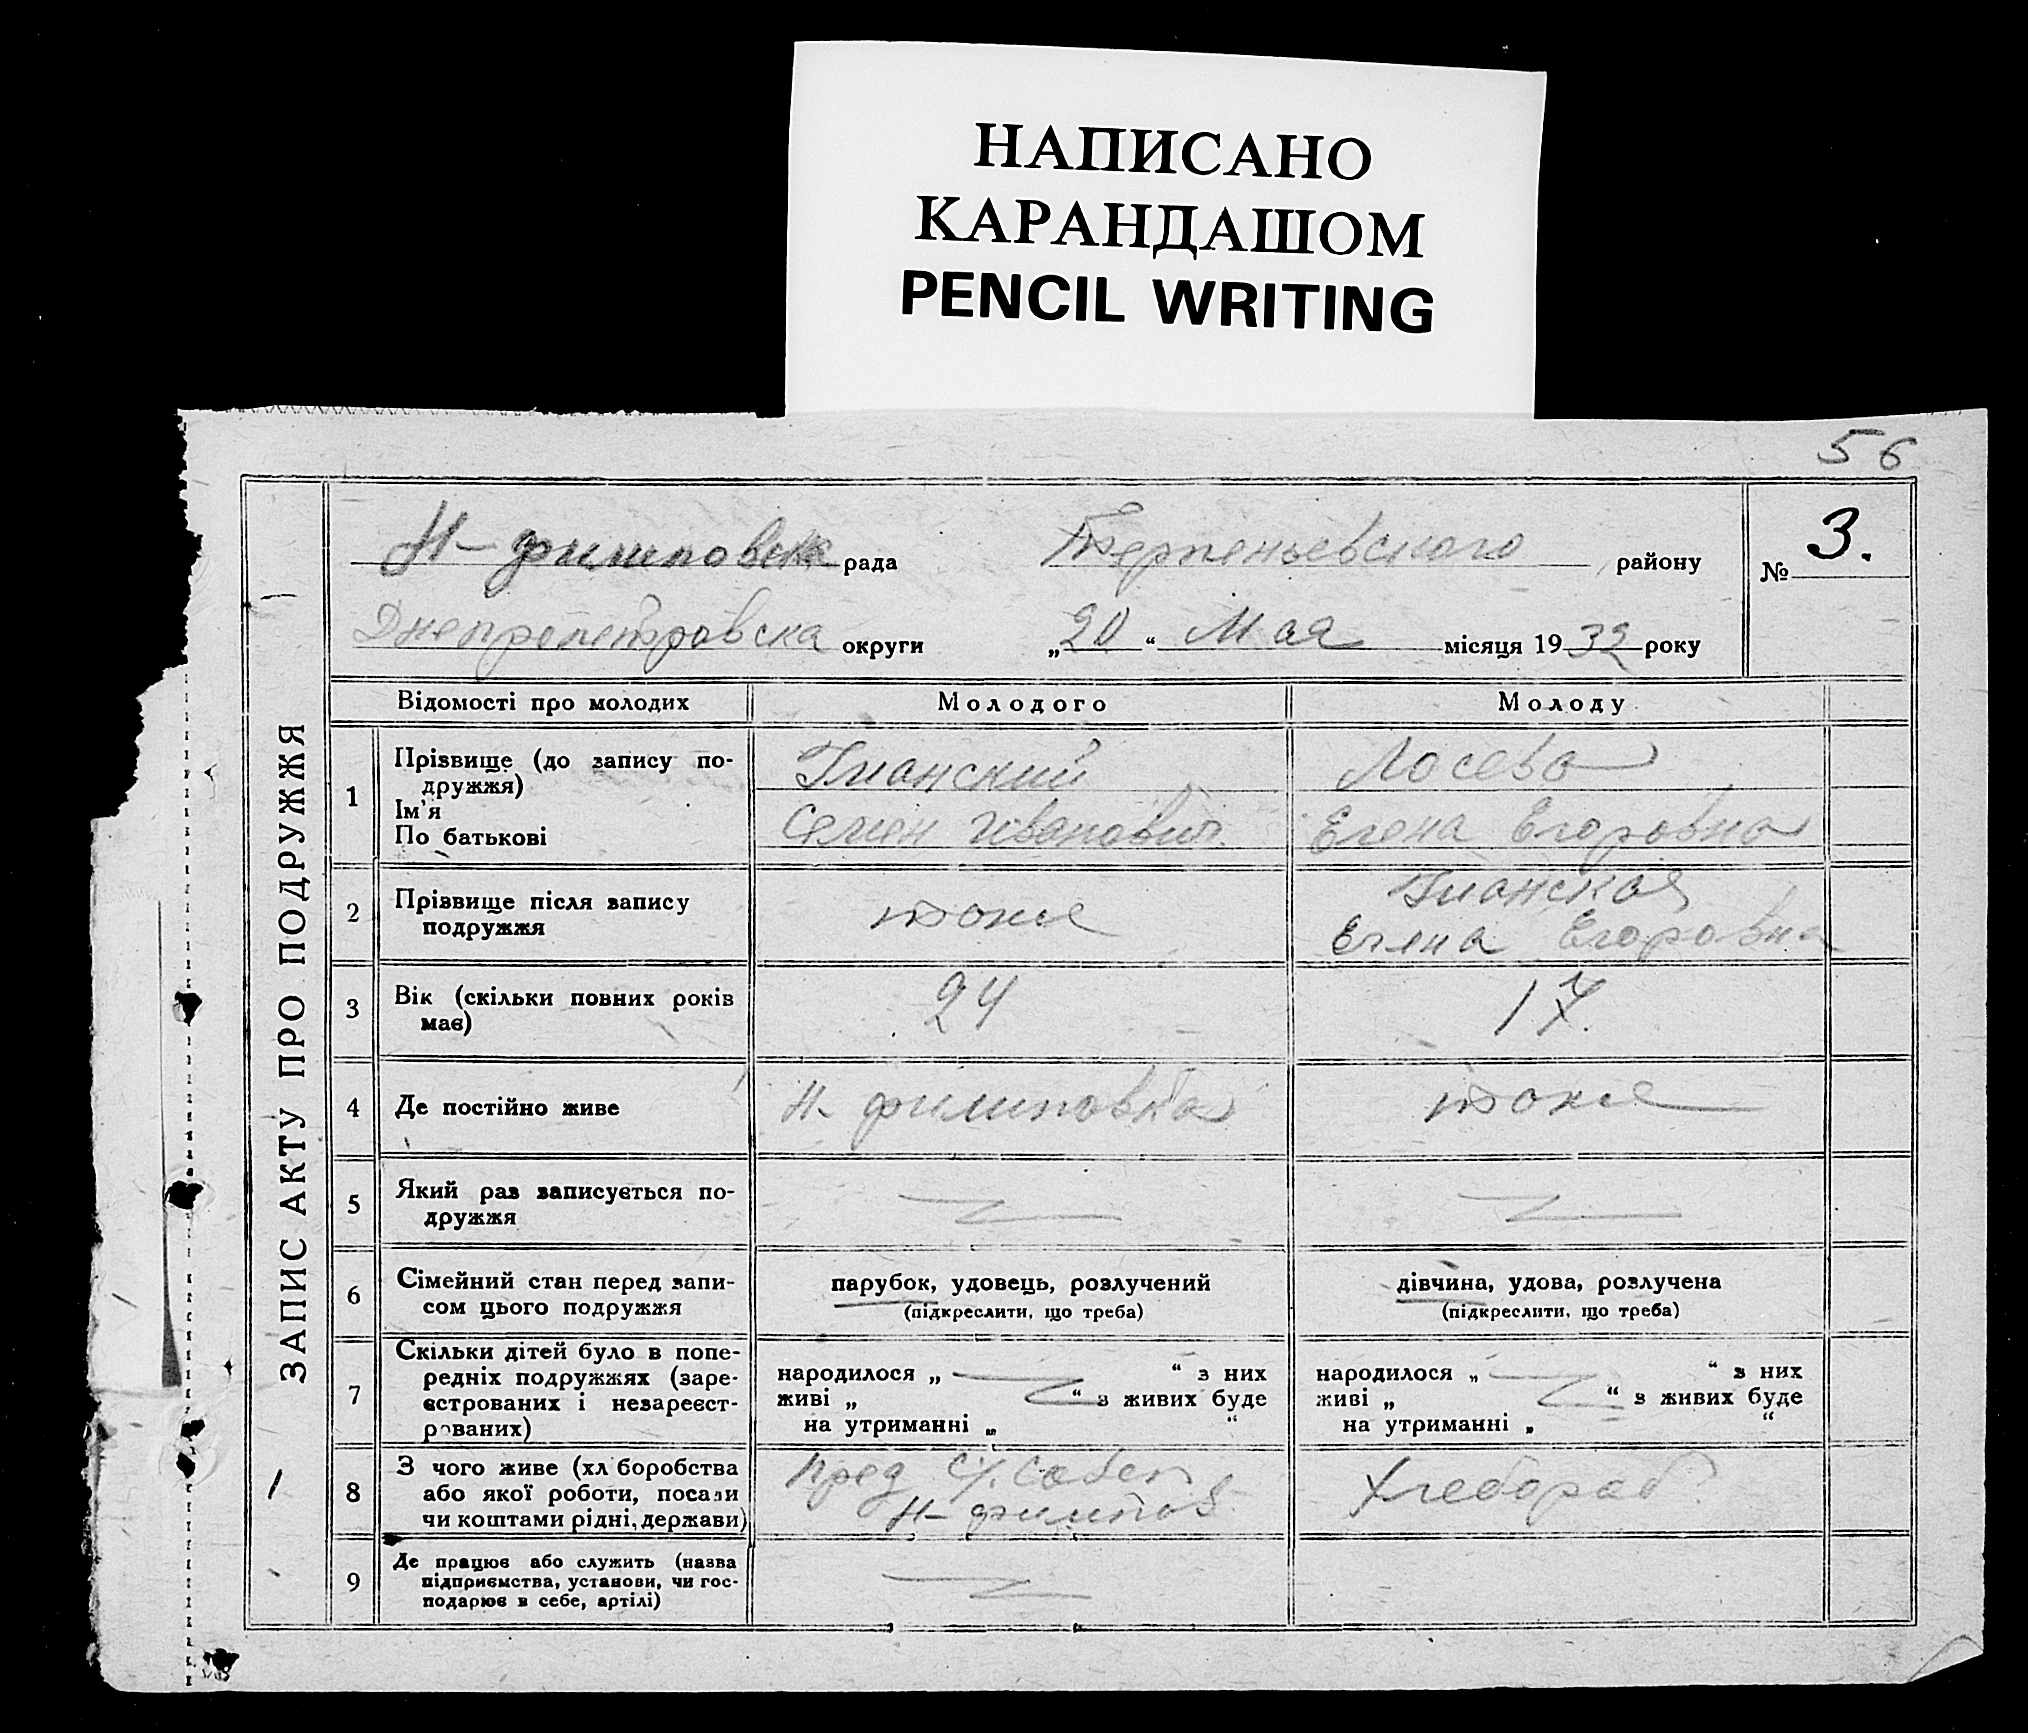 НАПИСАНО
КАРАНДАШОМ
PENCIL WRITING
56
ЗАПИС АКТУ ПРО ПОДРУЖЖЯ
Н-филиповска рада Терпеньевского району № 3.
Днепропетровска округи „20“ Мая місяця 1932 року
Відомості про молодих Молодого Молоду
1 Прізвище (до запису по-
дружжя)
Ім'я
По батькові
Семен Иванович
Лосева
Елена Егоровна
2 Прізвище після запису
подружжя
тоже
Елена Егоровна
3 Вік (скільки повних років
має)
24 17.
4 Де постійно живе Н-филиповка тоже
5 Який раз записується по-
дружжя
6 Сімейний стан перед запи-
сом цього подружжя
парубок, удовець, розлучений
(підкреслити, що треба)
дівчина, удова, розлучена
(підкреслити, що треба)
7 Скільки дітей було в попе-
редніх подружжях (заре-
єстрованих і незареєст-
рованих)
народилося „ “ з них
живі „ “ з живих буде
на утриманні „ “
народилося „ “ з них
живі „ “ з живих буде
на утриманні „ “
8 З чого живе (хліборобства
або якої роботи, посади
чи коштами рідні, держави)
Пред С/. Совет
Н-филипов
Хлебороб
9 Де працює або служить (назва
підприємства, установи, чи гос-
подарює в себе, артілі)